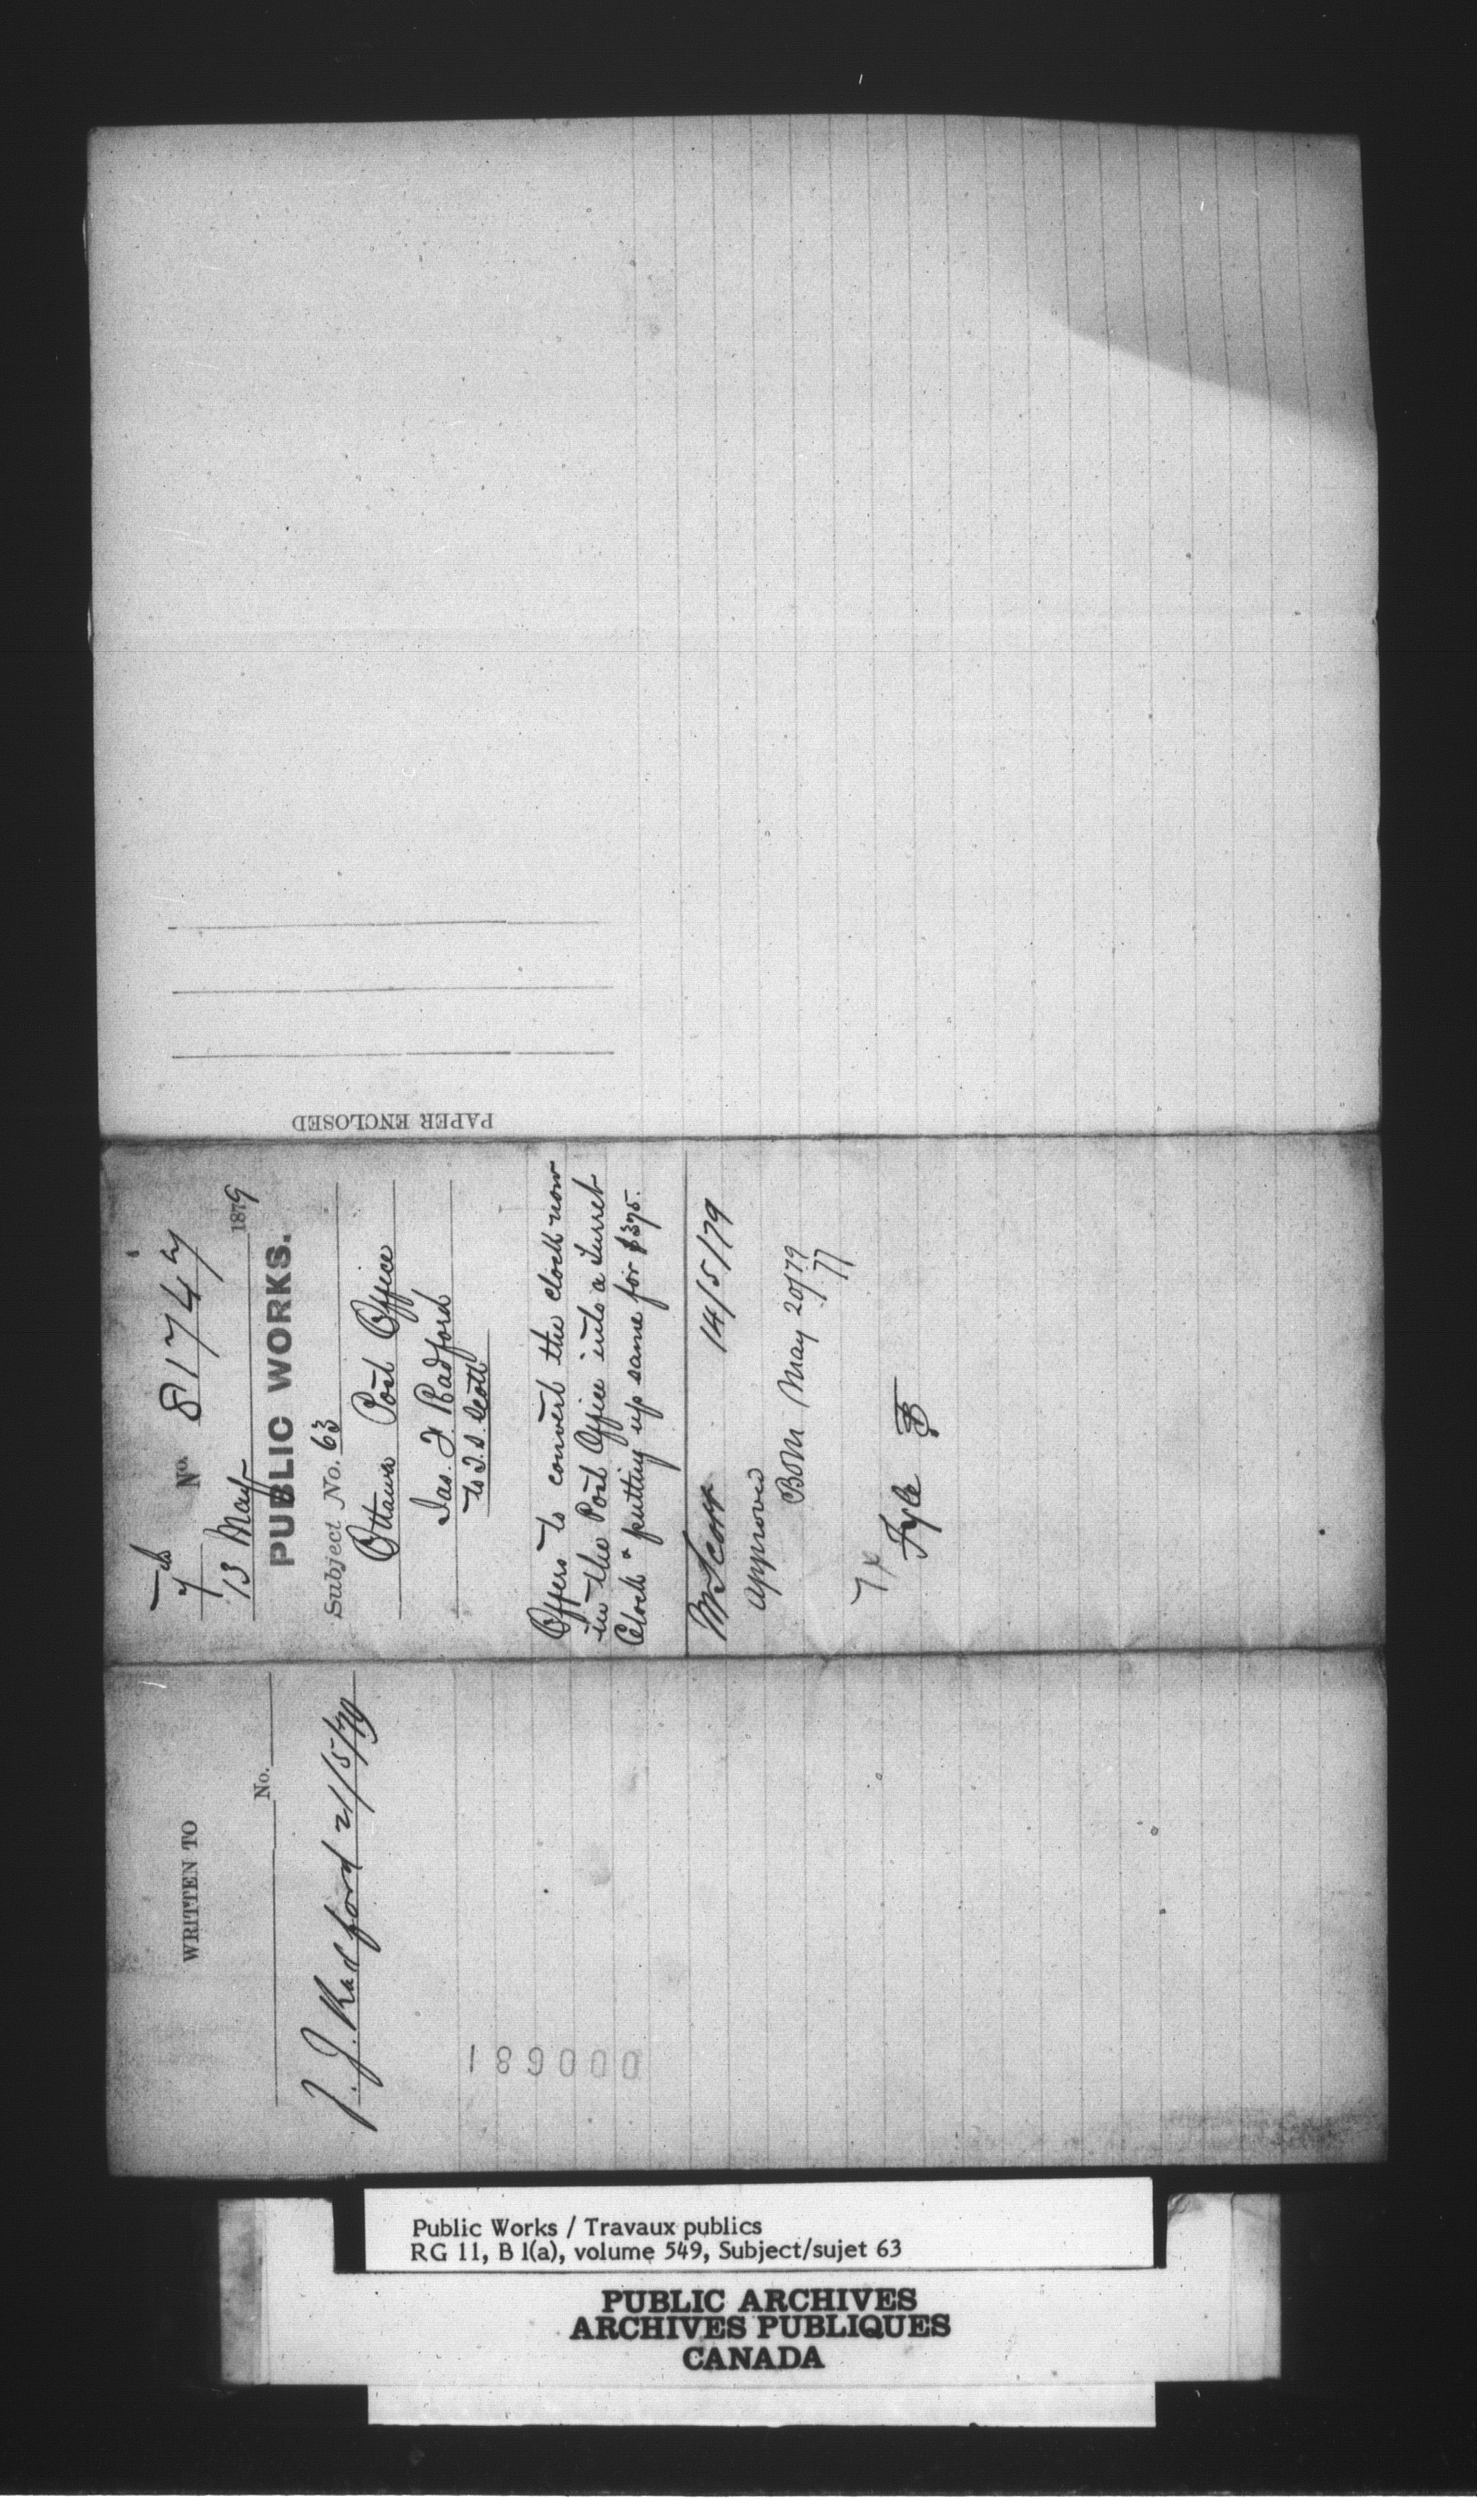 Nº 81747
13 May 1879
PUBLIC WORKS.
Subject No. 63
Ottawa Post Office
Jas. F. Radford
to T. S. Scott
Offers to convert the clock now
in the Post Office into a Turret
Clock & putting up same for $375.
Mr Scott 14/5/79
Approved
May 20/79
77
Fyle B
PAPER ENCLOSED
WRITTEN TO
No.
J. J. Radford 21/5/79
000681
Public Works / Travaux publics
RG 11, B 1(a), volume 549, Subject/sujet 63
PUBLIC ARCHIVES
ARCHIVES PUBLIQUES
CANADA